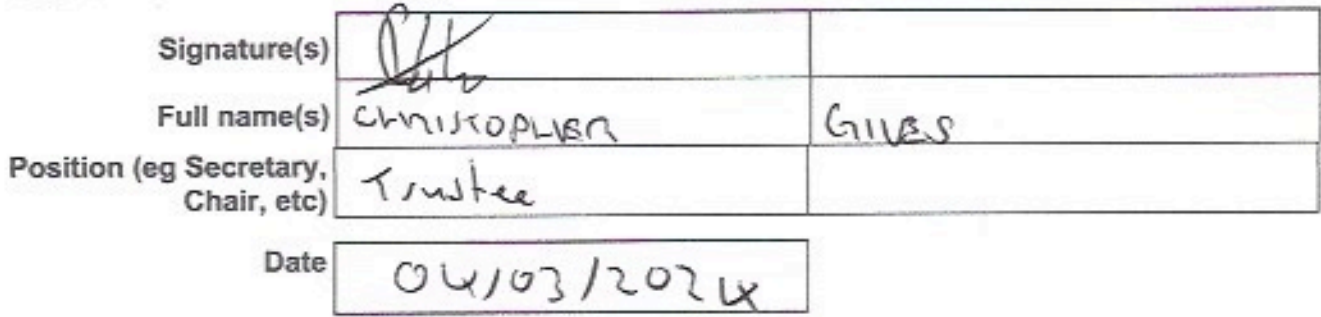 Signature(s)
Full name(s) CHRISTOPHER GILES
Position (eg Secretary,
Chair, etc) Trustee
Date 04/03/2024